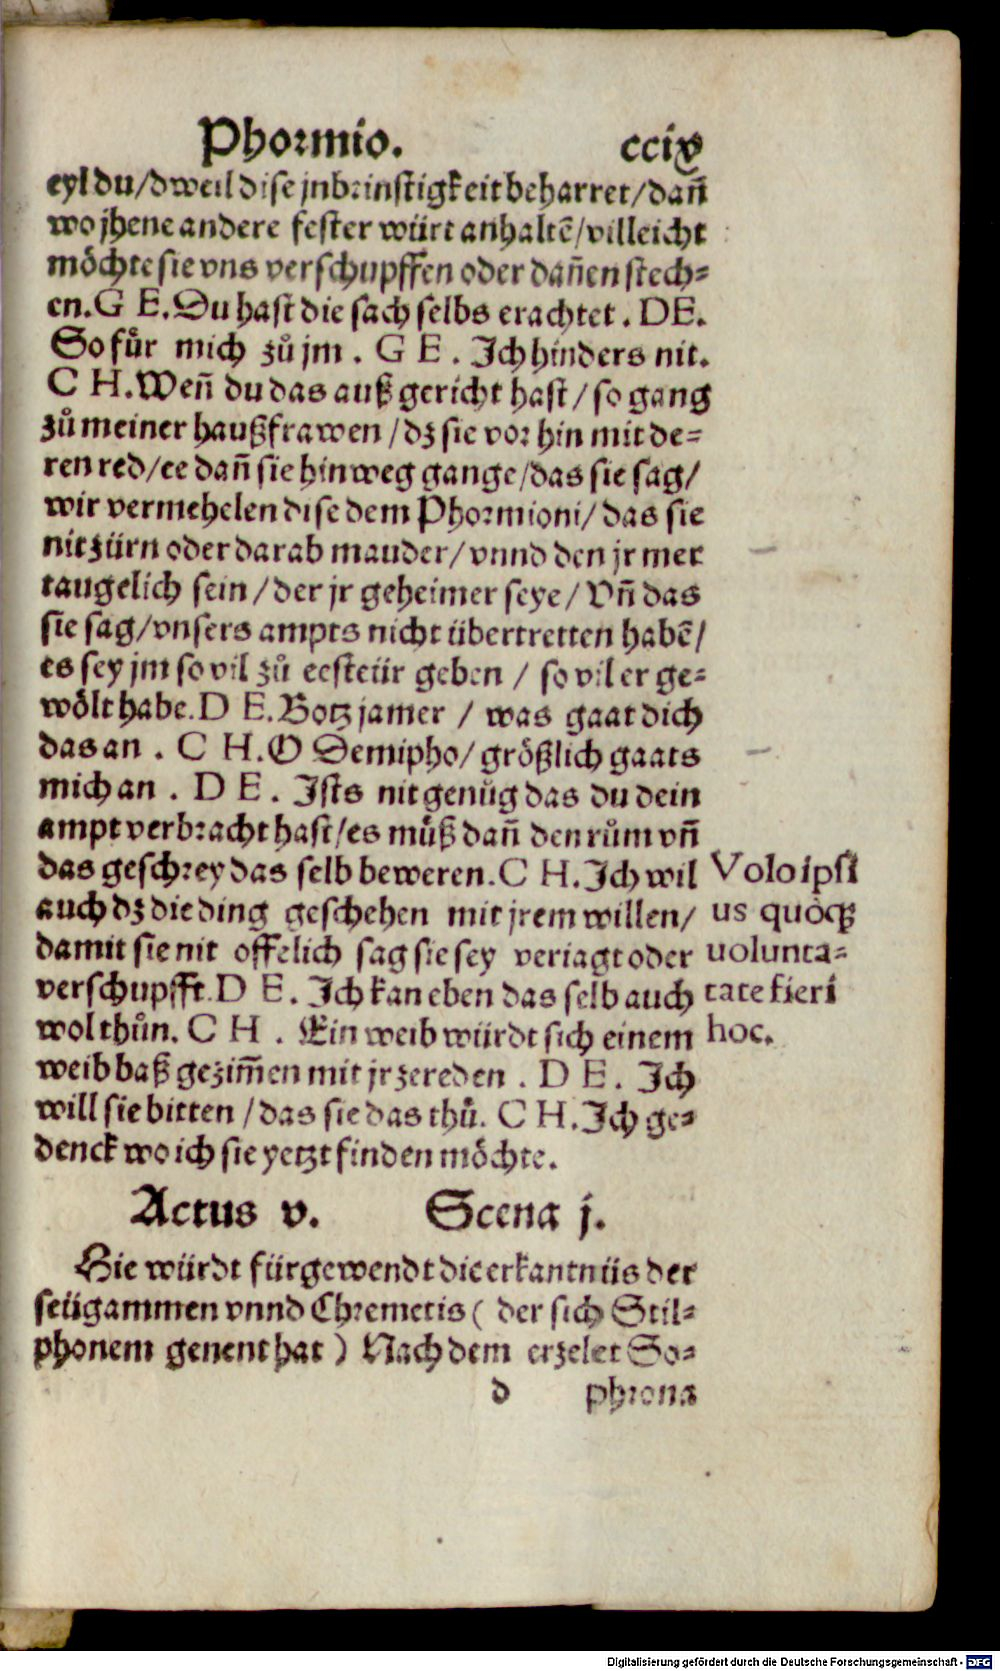 Phormio. ccix
eyl du/dweil dise jnbrinstigkeit beharret/dañ
wo jhene andere fester würt anhaltē/villeicht
möchte sie vns verschupffen oder dañen stech=
en. G E. Du hast die sach selbs erachtet. DE.
So fůr mich zů jm. G E. Ich hinders nit.
C H. Weñ du das auß gericht hast/so gang
zů meiner haußfrawen/dz sie vor hin mit de=
ren red/ee dañ sie hinweg gange/das sie sag/
wir vermehelen dise dem Phormioni/das sie
nit zürn oder darab mauder/vnnd den jr mer
taugelich sein/der jr geheimer seye/Vñ das
sie sag/vnsers ampts nicht übertretten habē/
es sey jm so vil zů eesteür geben/so vil er ge=
wölt habe. D E. Botz jamer/was gaat dich
das an. C H. O Demipho/größlich gaats
mich an. D E. Ists nit genůg das du dein
ampt verbracht hast/es můß dañ den rům vñ
das geschrey das selb beweren. C H. Ich wil
auch dz die ding geschehen mit jrem willen/
damit sie nit offelich sag sie sey veriagt oder
verschupfft. D E. Ich kan eben das selb auch
wol thůn. C H. Ein weib würdt sich einem
weib baß gezim̄en mit jr zereden. D E. Ich
will sie bitten/das sie das thů. C H. Ich ge=
denck wo ich sie yetzt finden möchte.
Volo ipsi
us quoq̃
uolunta=
tate fieri
hoc.
Actus v. Scena j.
Hie würdt fürgewendt die erkantnüs der
seügammen vnnd Chremetis (der sich Stil=
phonem genent hat) Nach dem erzelet So=
d phrona
Digitalisierung gefördert durch die Deutsche Forschungsgemeinschaft - DFG